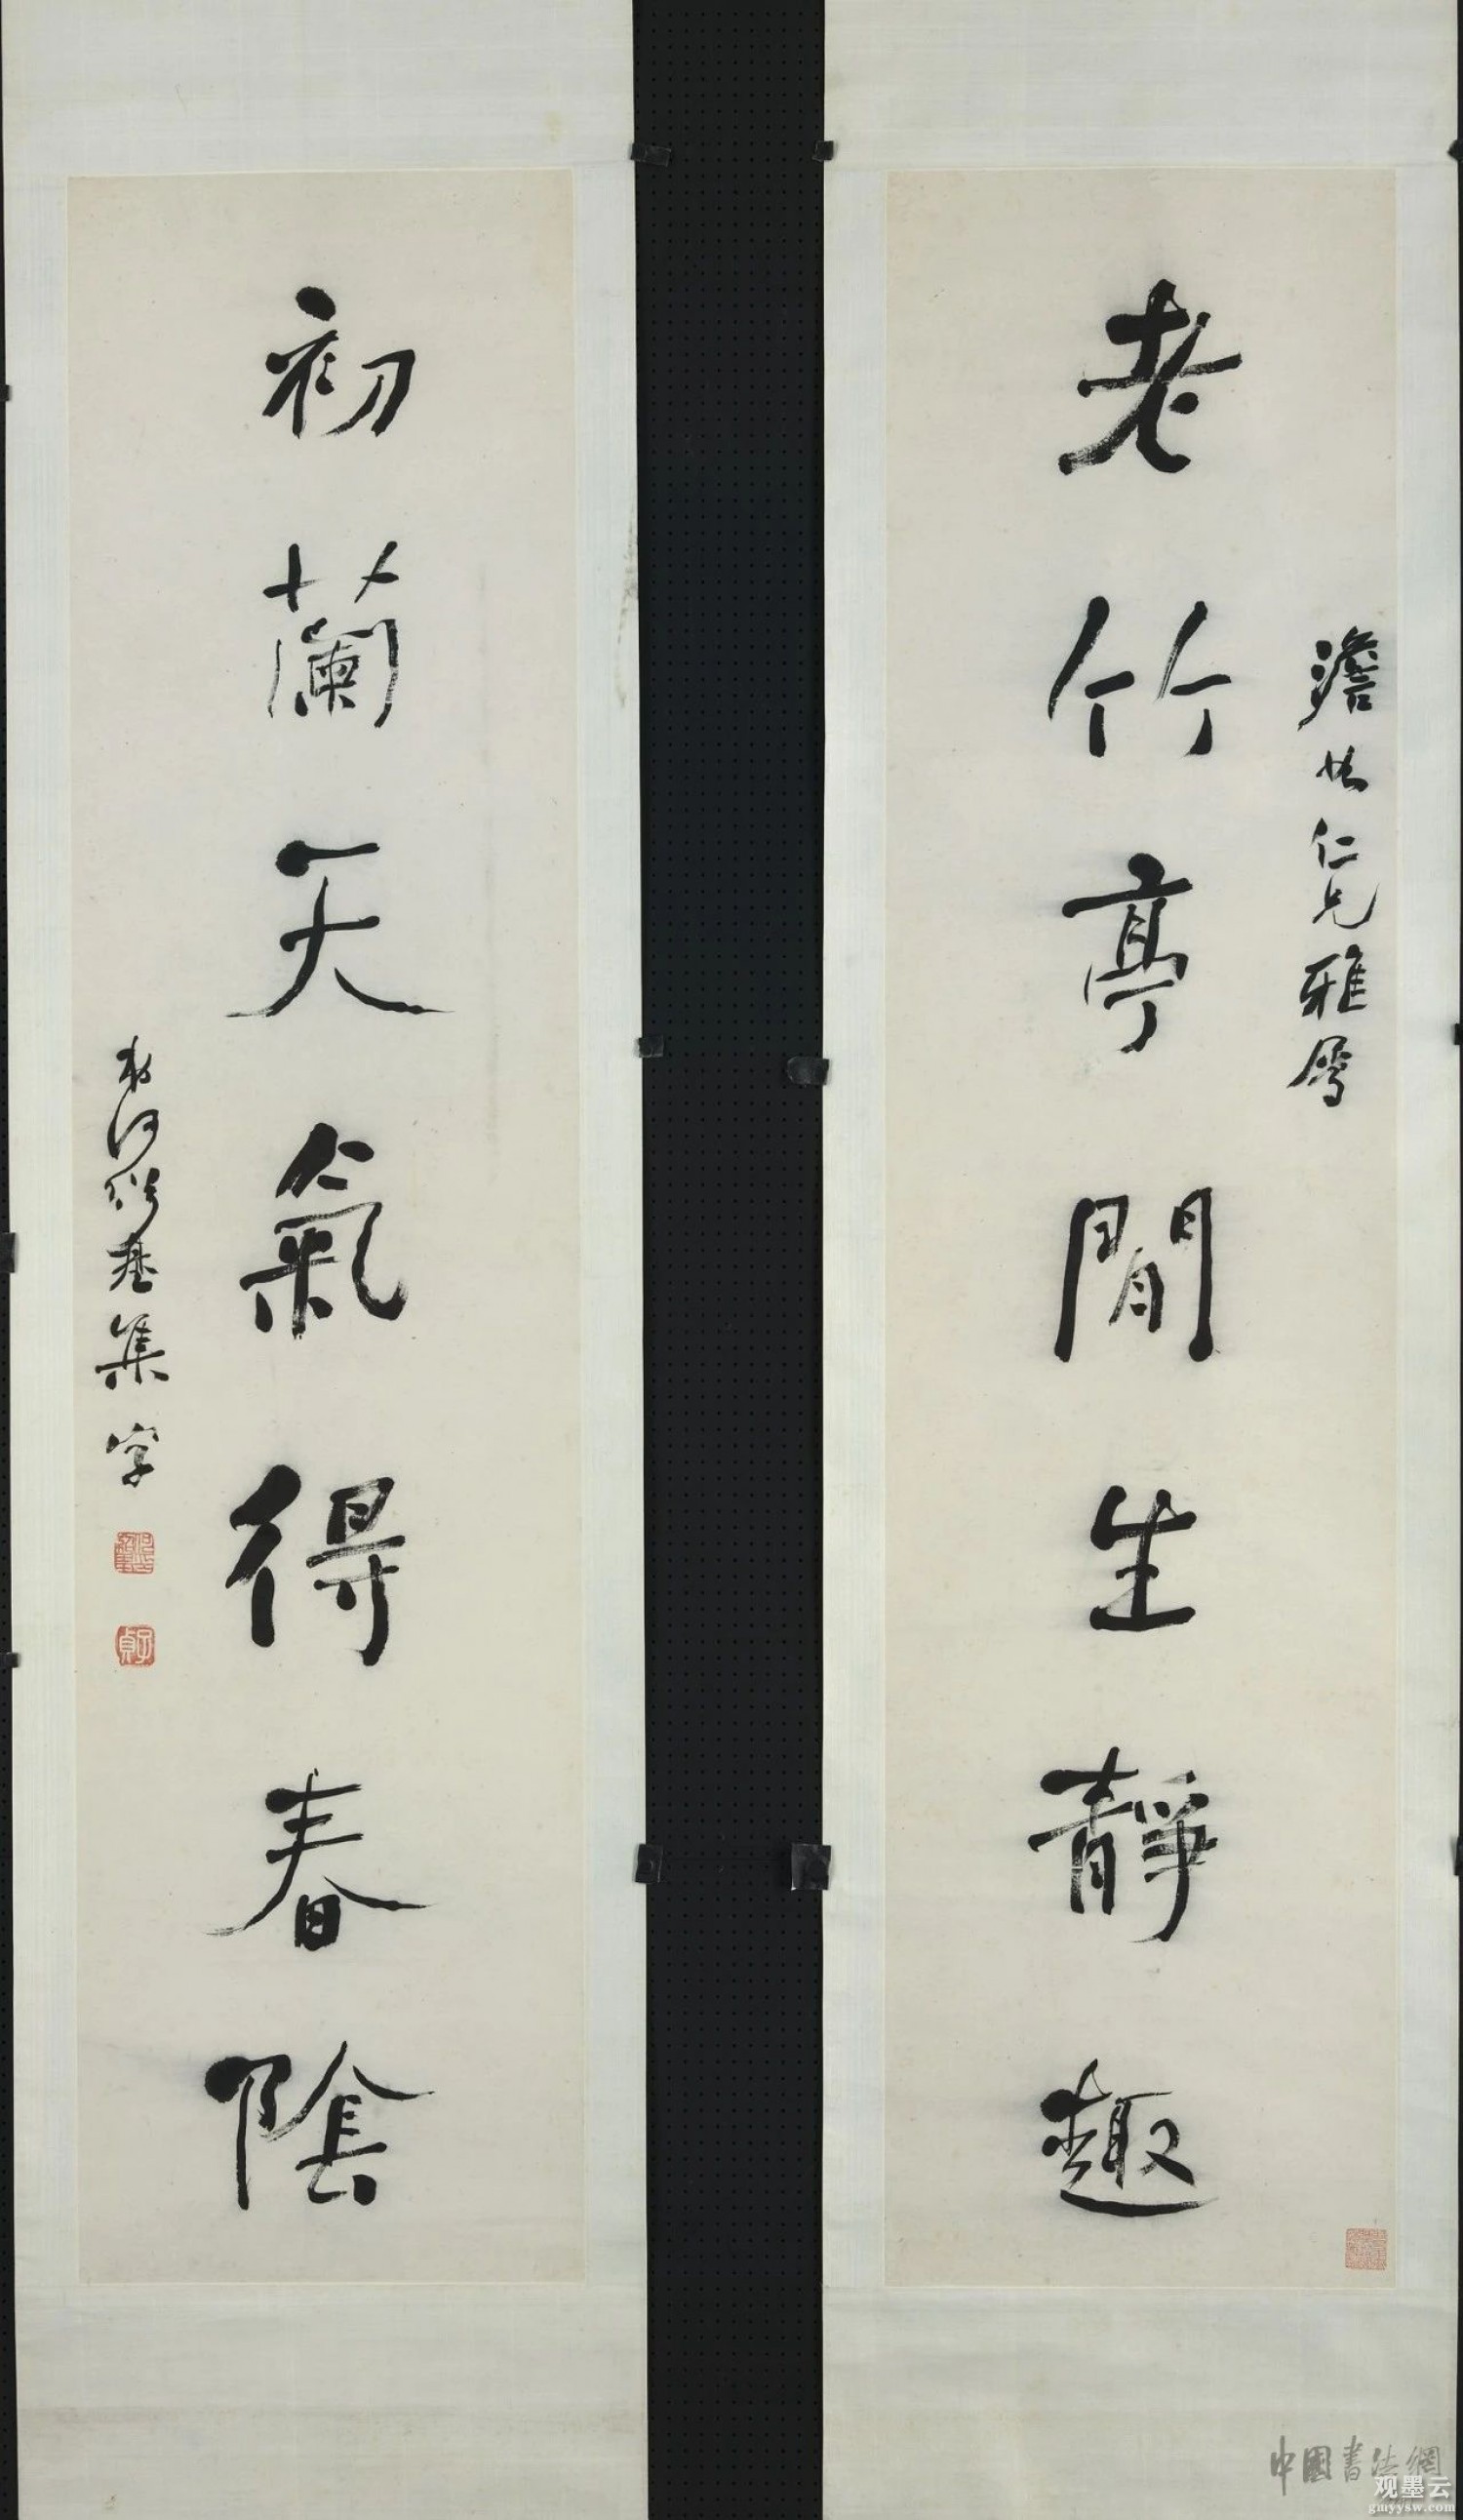 澹怡仁兄雅属
老竹亭閒生靜趣
初蘭天氣得春陰
弟何紹基集字
子貞
中國書法網
观墨云
gmyysw.com